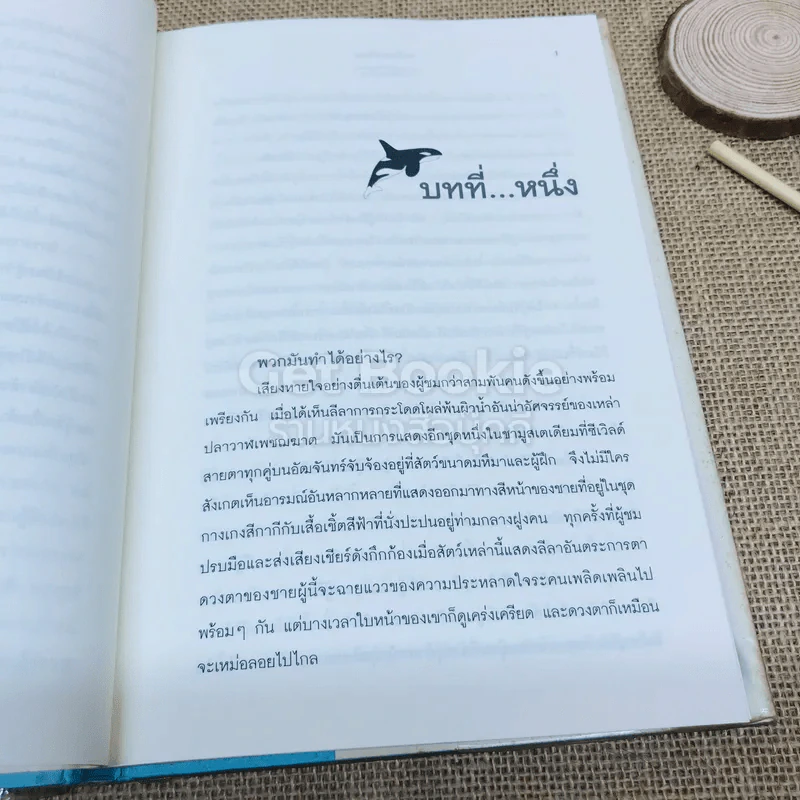 ๑
บทที่...หนึ่ง
พวกมันทำได้อย่างไร?
เสียงหายใจอย่างตื่นเต้นของผู้ชมกว่าสามพันคนดังขึ้นอย่างพร้อม
เพรียงกัน เมื่อได้เห็นลีลาการกระโดดโผล่พ้นผิวน้ำอันน่าอัศจรรย์ของเหล่า
ปลาวาฬเพชฌฆาต มันเป็นการแสดงอีกชุดหนึ่งในชามูสเตเดียมที่ซีเวิลด์
สายตาทุกคู่บนอัฒจันทร์จับจ้องอยู่ที่สัตว์ขนาดมหึมาและผู้ฝึก จึงไม่มีใคร
สังเกตเห็นอารมณ์อันหลากหลายที่แสดงออกมาทางสีหน้าของชายที่อยู่ในชุด
กางเกงสีกากีกับเสื้อเชิ้ตสีฟ้าที่นั่งปะปนอยู่ท่ามกลางฝูงคน ทุกครั้งที่ผู้ชม
ปรบมือและส่งเสียงเชียร์ดังกึกก้องเมื่อสัตว์เหล่านี้แสดงลีลาอันตระการตา
ดวงตาของชายผู้นี้จะฉายแววของความประหลาดใจระคนเพลิดเพลินไป
พร้อมๆ กัน แต่บางเวลาใบหน้าของเขาก็ดูเคร่งเครียด และดวงตาก็เหมือน
จะเหม่อลอยไปไกล
Get Bookie
ร้านหนังสือบุ๊คกี้